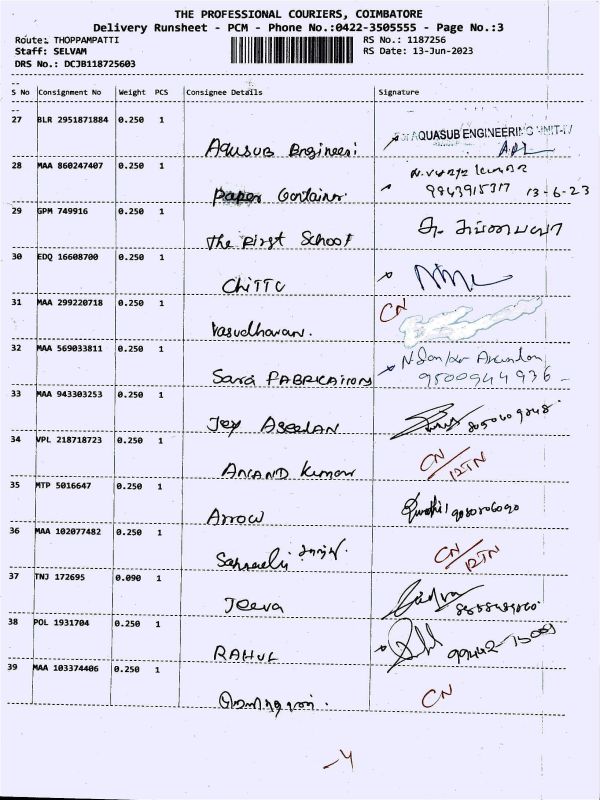 THE PROFESSIONAL COURIERS, COIMBATORE
Delivery Runsheet - PCM - Phone No.:0422-3505555 - Page No.:3
Route: THOPPAMPATTI RS No.: 1187256
Staff: SELVAM RS Date: 13-Jun-2023
DRS No.: DCJB118725603
S No Consignment No Weight PCS Consignee Details Signature
27 BLR 2951871884 0.250 1
Aqusub Engineeri AQUASUB ENGINEERING UNIT-IV
28 MAA 860247407 0.250 1
Paper Container 9843915317 13-6-23
29 GPM 749916 0.250 1
The First School
30 EDQ 16608700 0.250 1
Chittu
31 MAA 299220718 0.250 1 CN
Vasudharan.
32 MAA 569033811 0.250 1
Sara FABRICATIONS 9500944936
33 MAA 943303253 0.250 1
Jey ASEELAN
34 VPL 218718723 0.250 1
ANAND Kumar CN/RTN
35 MTP 5016647 0.250 1
Arrow
36 MAA 102077482 0.250 1
CN/RTN
37 TNJ 172695 0.090 1
Jeeva
38 POL 1931704 0.250 1
RAHUL
39 MAA 103374406 0.250 1
CN
-4